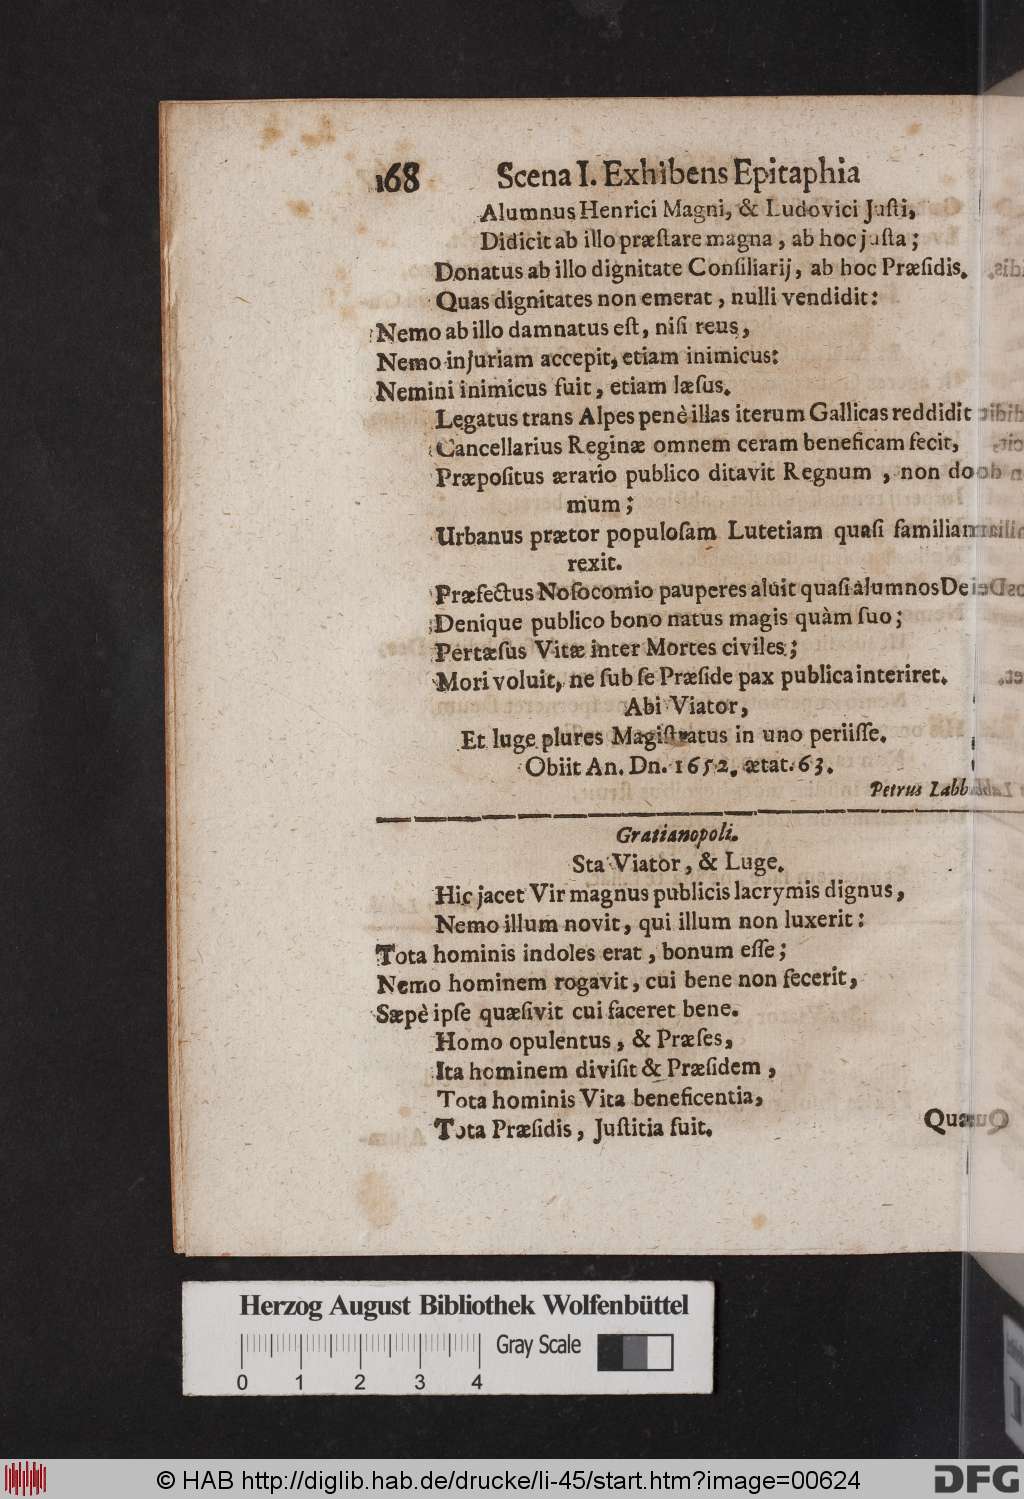 168 Scena I. Exhibens Epitaphia
Alumnus Henrici Magni, & Ludovici Juſti,
Didicit ab illo præſtare magna, ab hoc juſta;
Donatus ab illo dignitate Conſiliarij, ab hoc Præſidis.
Quas dignitates non emerat, nulli vendidit:
Nemo ab illo damnatus eſt, niſi reus,
Nemo injuriam accepit, etiam inimicus:
Nemini inimicus fuit, etiam læſus.
Legatus trans Alpes penè illas iterum Gallicas reddidit
Cancellarius Reginæ omnem ceram beneficam fecit,
Præpoſitus ærario publico ditavit Regnum, non do
mum;
Urbanus prætor populoſam Lutetiam quaſi familiam
rexit.
Præfectus Noſocomio pauperes aluit quaſi alumnos Dei
Denique publico bono natus magis quàm ſuo;
Pertæſus Vitæ inter Mortes civiles;
Mori voluit, ne ſub ſe Præſide pax publica interiret.
Abi Viator,
Et luge plures Magiſtratus in uno periiſſe.
Obiit An. Dn. 1652. ætat. 63.
Petrus Labb
Gratianopoli.
Sta Viator, & Luge.
Hic jacet Vir magnus publicis lacrymis dignus,
Nemo illum novit, qui illum non luxerit:
Tota hominis indoles erat, bonum eſſe;
Nemo hominem rogavit, cui bene non fecerit,
Sæpè ipſe quæſivit cui faceret bene.
Homo opulentus, & Præſes,
Ita hominem diviſit & Præſidem,
Tota hominis Vita beneficentia,
Tota Præſidis, Juſtitia fuit.
Quæ
Herzog August Bibliothek Wolfenbüttel
Gray Scale
0 1 2 3 4
© HAB http://diglib.hab.de/drucke/li-45/start.htm?image=00624
DFG